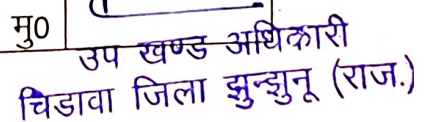 मु0
उप खण्ड अधिकारी
चिडावा जिला झुन्झुनू (राज.)